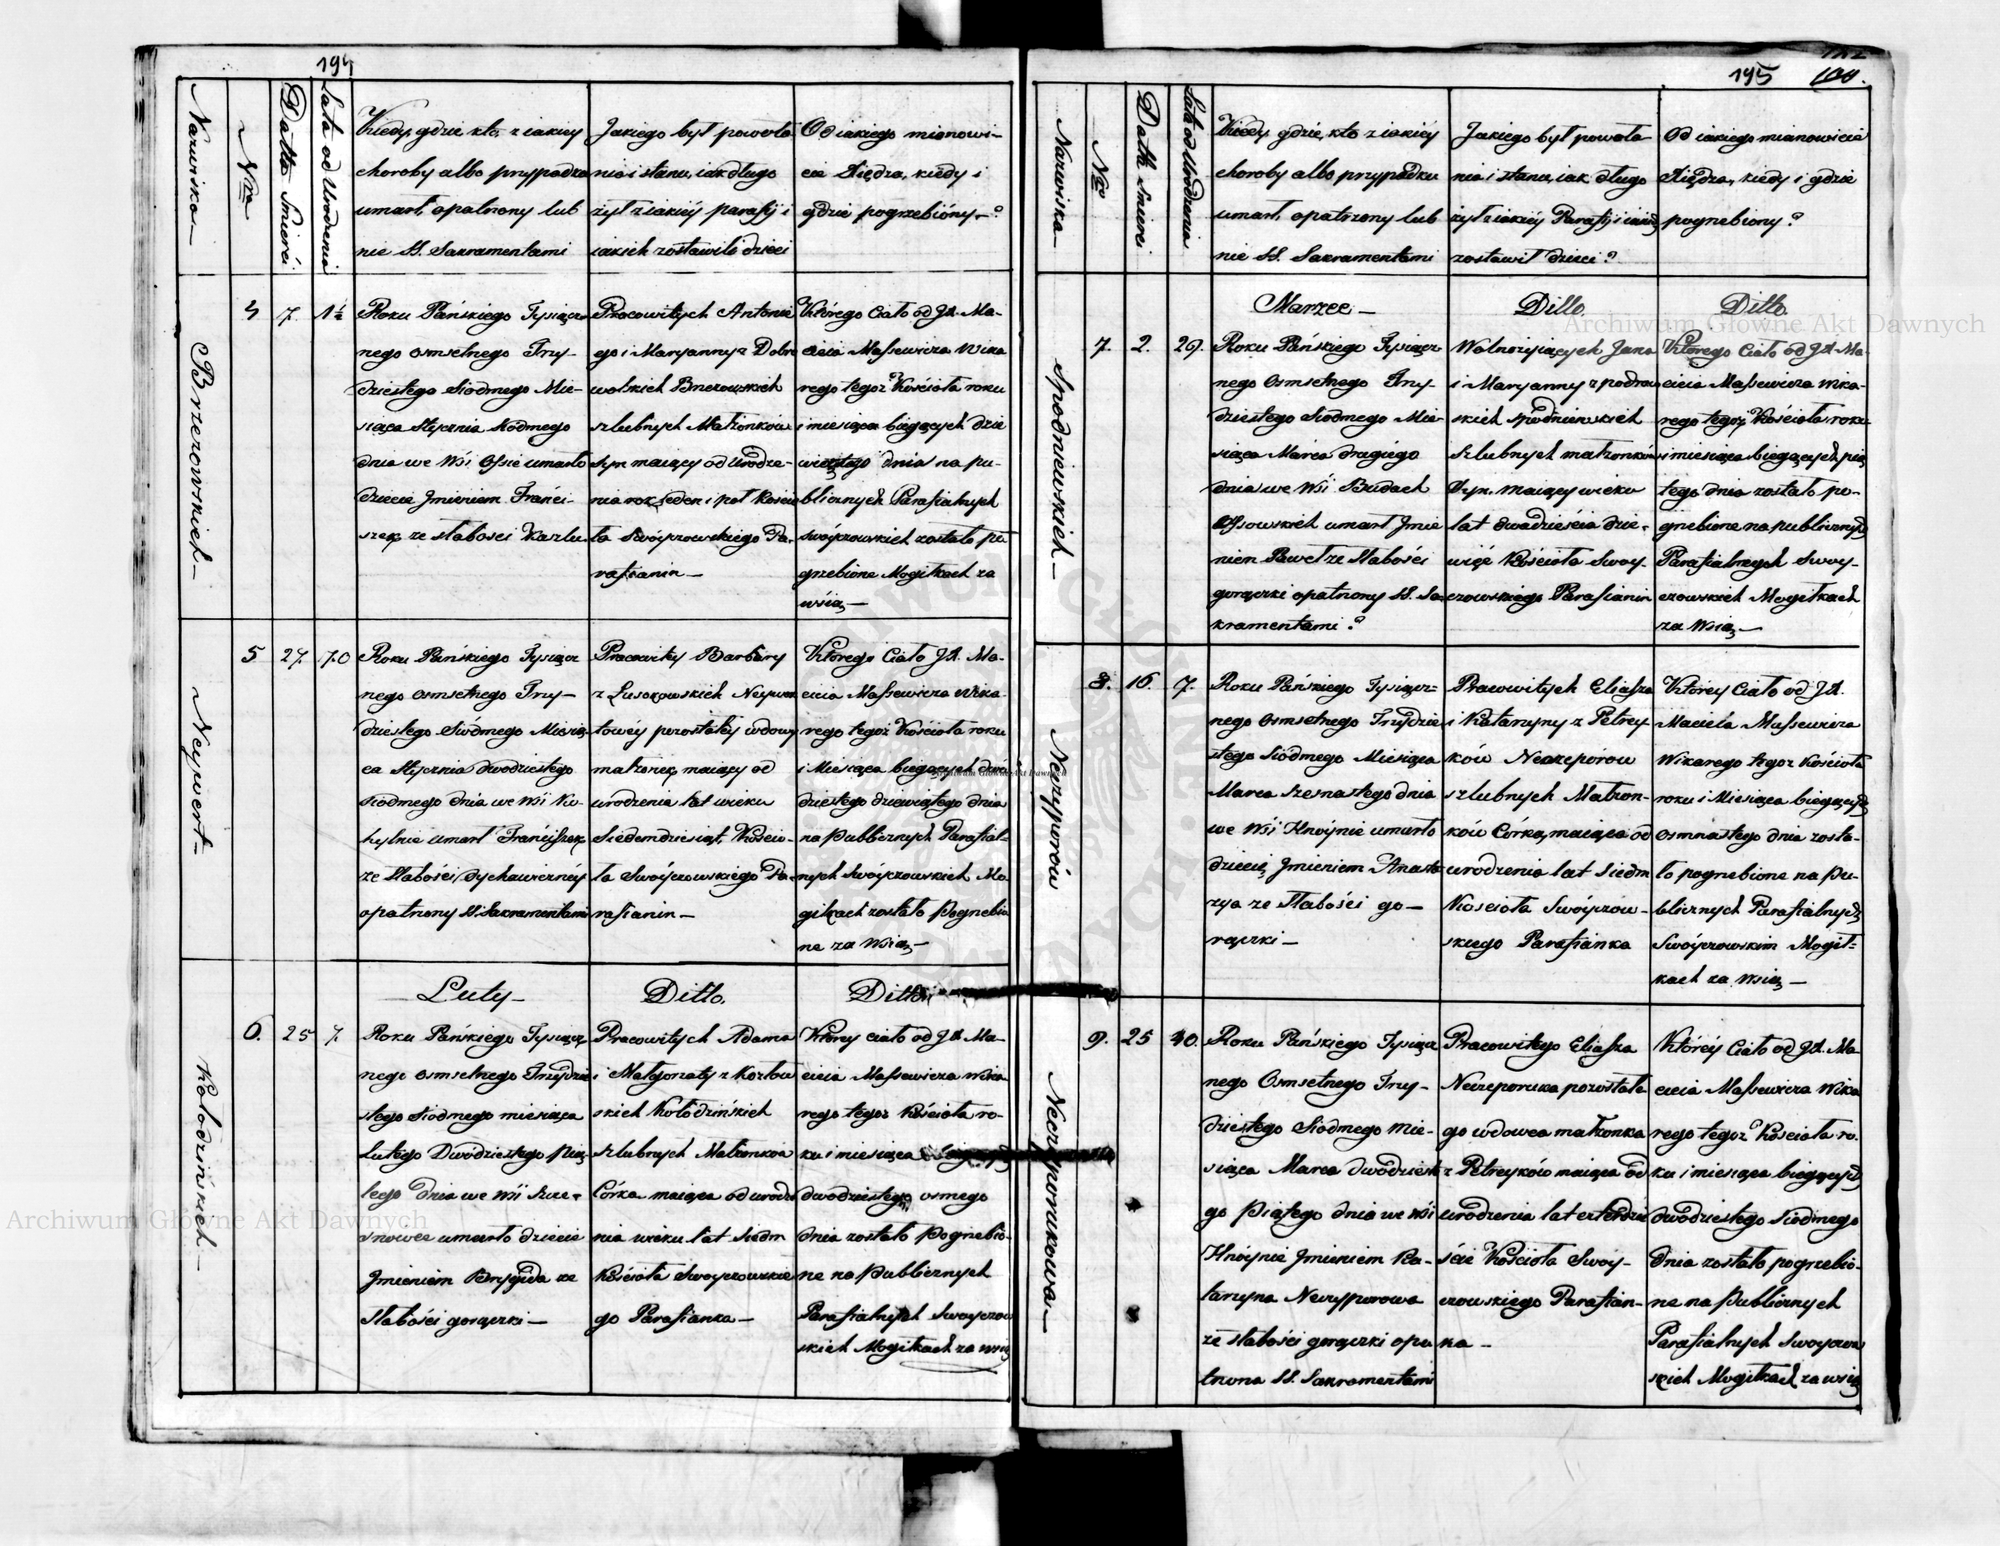 194
Nazwiska—
Nra
Datta Śmierći
Lata od Urodzenia
Kiedy, gdzie kto, z iakiey
choroby albo przypadku
umarł, opatrzony lub
nie SS. Sakramentami
Jakiego był powoła
nia i stanu, iak długo
żył z iakiéy parafij i
iakich zostawił dzieci
Od iakiego mianowi-
cie Xiędza, kiedy i
gdzie pogrzebióny—?
Brzezowskich—
4
7.
1½
Roku Pańskiego Tysiącz
nego osmsetnego Trzy-
dziestego Siodmego Mie-
siąca Stycznia Siódmego
dnia we Wsi Ossie umarło
dziecie Jmieniem Franci-
szek ze słabosci Kaszlu
Pracowitych Antonie
go i Maryanny z Dobro
wolskich Brzezowskich
szlubnych Małżonków
Syn maiący od Urodze-
nia rok jeden i poł Kościo
ła Swóyczowskiego Pa-
rafianin—
Którego Ciało od JX. Ma-
cieia Massewicza Wika
rego tegoż Kościoła roku
i miesiąca bieżących dzie
wiątego dnia na pu-
blicznych Parafialnych
Swóyczowskich zostało po
grzebione Mogiłkach za
wsią—
Neywert—
5
27.
70
Roku Pańskiego Tysiącz
nego osmsetnego Trzy—
dziestego Siódmego Miesią
ca Stycznia dwudziestego
siodmego dnia we Wsi Ko
hylnie umarł Franciszek
ze Słabości dychawiczney
opatrzony SS. Sakramentami
Pracowitey Barbary
z Lusokowskich Neywer
towéy pozostałey wdowy
małżonek, maiący od
urodzenia lat wieku
Siedemdziesiąt, Kościo-
ła Swóyczowskiego Pa-
rafianin—
Którego Ciało JX. Ma-
cieia Massewicza Wika-
rego tegoż Kościoła roku
i Miesiąca bieżących dwó
dziestego dziewiątego dnia
na Publicznych Parafial-
nych Swóyczowskich Mo-
giłkach zostało Pogrzebio
ne za Wsią—
Luty—
Ditto.
Ditto.
Kołodzińskich—
6.
25
7.
Roku Pańskiego Tysiącz
nego osmsetnego Trzydzie
stego Siodmego miesiąca
Lutego Dwódziestego Pią
tego dnia we Wsi
umarło dziecie
Jmieniem Brygida ze
Słabości gorączki—
Pracowitych Adama
i Małgorzaty z Kozłow
skich Kołodzińskich
szlubnych Małżonków
Córka maiąca od urodze
nia wieku lat Siedm
Kościoła Swoyczowskie
go Parafianka—
Którey ciało od JX. Ma-
cieia Massewicza Wika
rego tegoż Kościoła ro-
ku i miesiąca bieżących
dwodziestego osmego
dnia zostało Pogrzebio-
ne na Publicznych
Parafialnych Swoyczow
skich Mogiłkach za wsią
195
100.
Nazwiska—
Nro
Datt Śmierci
Lata od Urodzenia
Kiedy, gdzie, kto z iakiéy
choroby albo przypadku
umarł, opatrzony lub
nie SS. Sakramentami
Jakiego był powoła
nia i stanu, iak długo
żył z iakiéy Parafij i iakich
zostawił dzieci?
Od iakiego mianowicie
Xiędza, kiedy i gdzie
pogrzebiony?
Marzec—
Ditto.
Ditto.
Spodniewskich—
7.
2.
29.
Roku Pańskiego Tysiącz
nego Osmsetnego Trzy-
dziestego Siodmego Mie-
siąca Marca drugiego
dnia we Wsi Budach
Ossowskich umarł Jmie
niem Paweł ze Słabości
gorączki opatrzony SS. Sa
kramentami?
Wolnożyiących Jana
i Maryanny z podrow
skich Spodniewskich
Szlubnych małżonków
Syn, maiący wieku
lat dwadzieścia dzie-
więć Kościoła Swoy-
czowskiego Parafianin
Którego Ciało od JX. Ma-
cieia Massewicza Wika-
rego tegoż Kościoła roku
i miesiąca bieżących pią
tego dnia zostało po-
grzebione na publicznych
Parafialnych Swoy-
czowskich Mogiłkach
za Wsią—
Neczyporów
8.
16.
7.
Roku Pańskiego Tysiącz=
nego Osmsetnego Trzydzie
stego Siódmego Miesiąca
Marca szesnastego dnia
we Wsi Hnóynie umarło
dziecię Jmieniem Anasta
zya ze Słabości go—
rączki—
Pracowitych Eliasza
i Katarzyny z Petrey
ków Neczeporow
szlubnych Małżon-
ków Córka, maiąca od
urodzenia lat siedm
Kościoła Swóyczow-
skiego Parafianka
Którey Ciało od JX.
Macieia Massewicza
Wikarego tegoz Kościoła
roku i Miesiąca bieżących
osmnastego dnia zosta-
ło pogrzebione na Pu-
blicznych Parafialnych
Swóyczowskim Mogił=
kach za Wsią—
Neczyporukowa—
9.
25
40.
Roku Pańskiego Tysiącz
nego Osmsetnego Trzy-
dziestego Siódmego Mie-
siąca Marca dwódzieste
go Piątego dnia we Wsi
Hnóynie Jmieniem Ka-
tarzyna Neczyporowa
ze słabości gorączki opa
trzona SS. Sakramentami
Pracowitego Eliasza
Neczeporuka pozostałe
go wdowca małżonka
z Petreyków maiąca od
urodzenia lat czterdzie
ście Kościoła Swóy-
czowskiego Parafian-
ka—
Któréy Ciało od JX. Ma-
cieia Massewicza Wika
rego tegoż Kościoła ro-
ku i miesiąca bieżących
dwodziestego Siódmego
dnia zostało pogrzebio-
ne na Publicznych
Parafialnych Swoyczow
skich Mogiłkach za wsią
Archiwum Główne Akt Dawnych
Archiwum Główne Akt Dawnych
Archiwum Główne Akt Dawnych